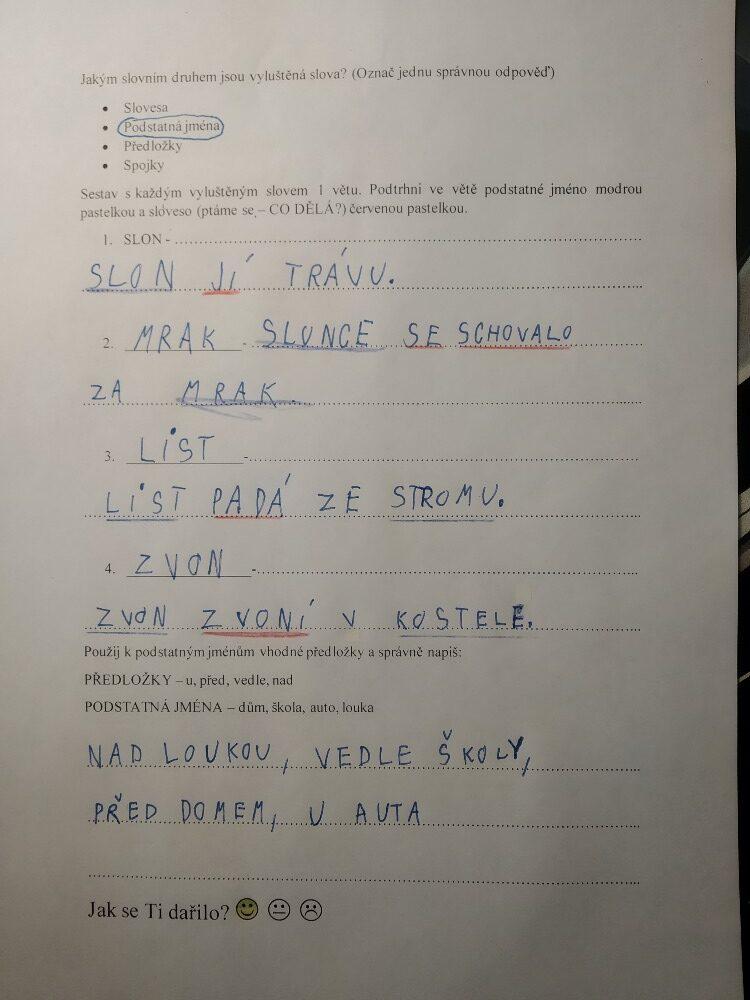 Jakým slovním druhem jsou vyluštěná slova? (Označ jednu správnou odpověď)
• Slovesa
• Podstatná jména
• Předložky
• Spojky
Sestav s každým vyluštěným slovem 1 větu. Podtrhni ve větě podstatné jméno modrou
pastelkou a slóveso (ptáme se – CO DĚLÁ?) červenou pastelkou.
1. SLON -
SLON JÍ TRÁVU.
2. MRAK - SLUNCE SE SCHOVALO
ZA MRAK.
3. LIST -
LIST PADÁ ZE STROMU.
4. ZVON -
ZVON ZVONÍ V KOSTELE.
Použij k podstatným jménům vhodné předložky a správně napiš:
PŘEDLOŽKY – u, před, vedle, nad
PODSTATNÁ JMÉNA – dům, škola, auto, louka
NAD LOUKOU, VEDLE ŠKOLY,
PŘED DOMEM, U AUTA
Jak se Ti dařilo?